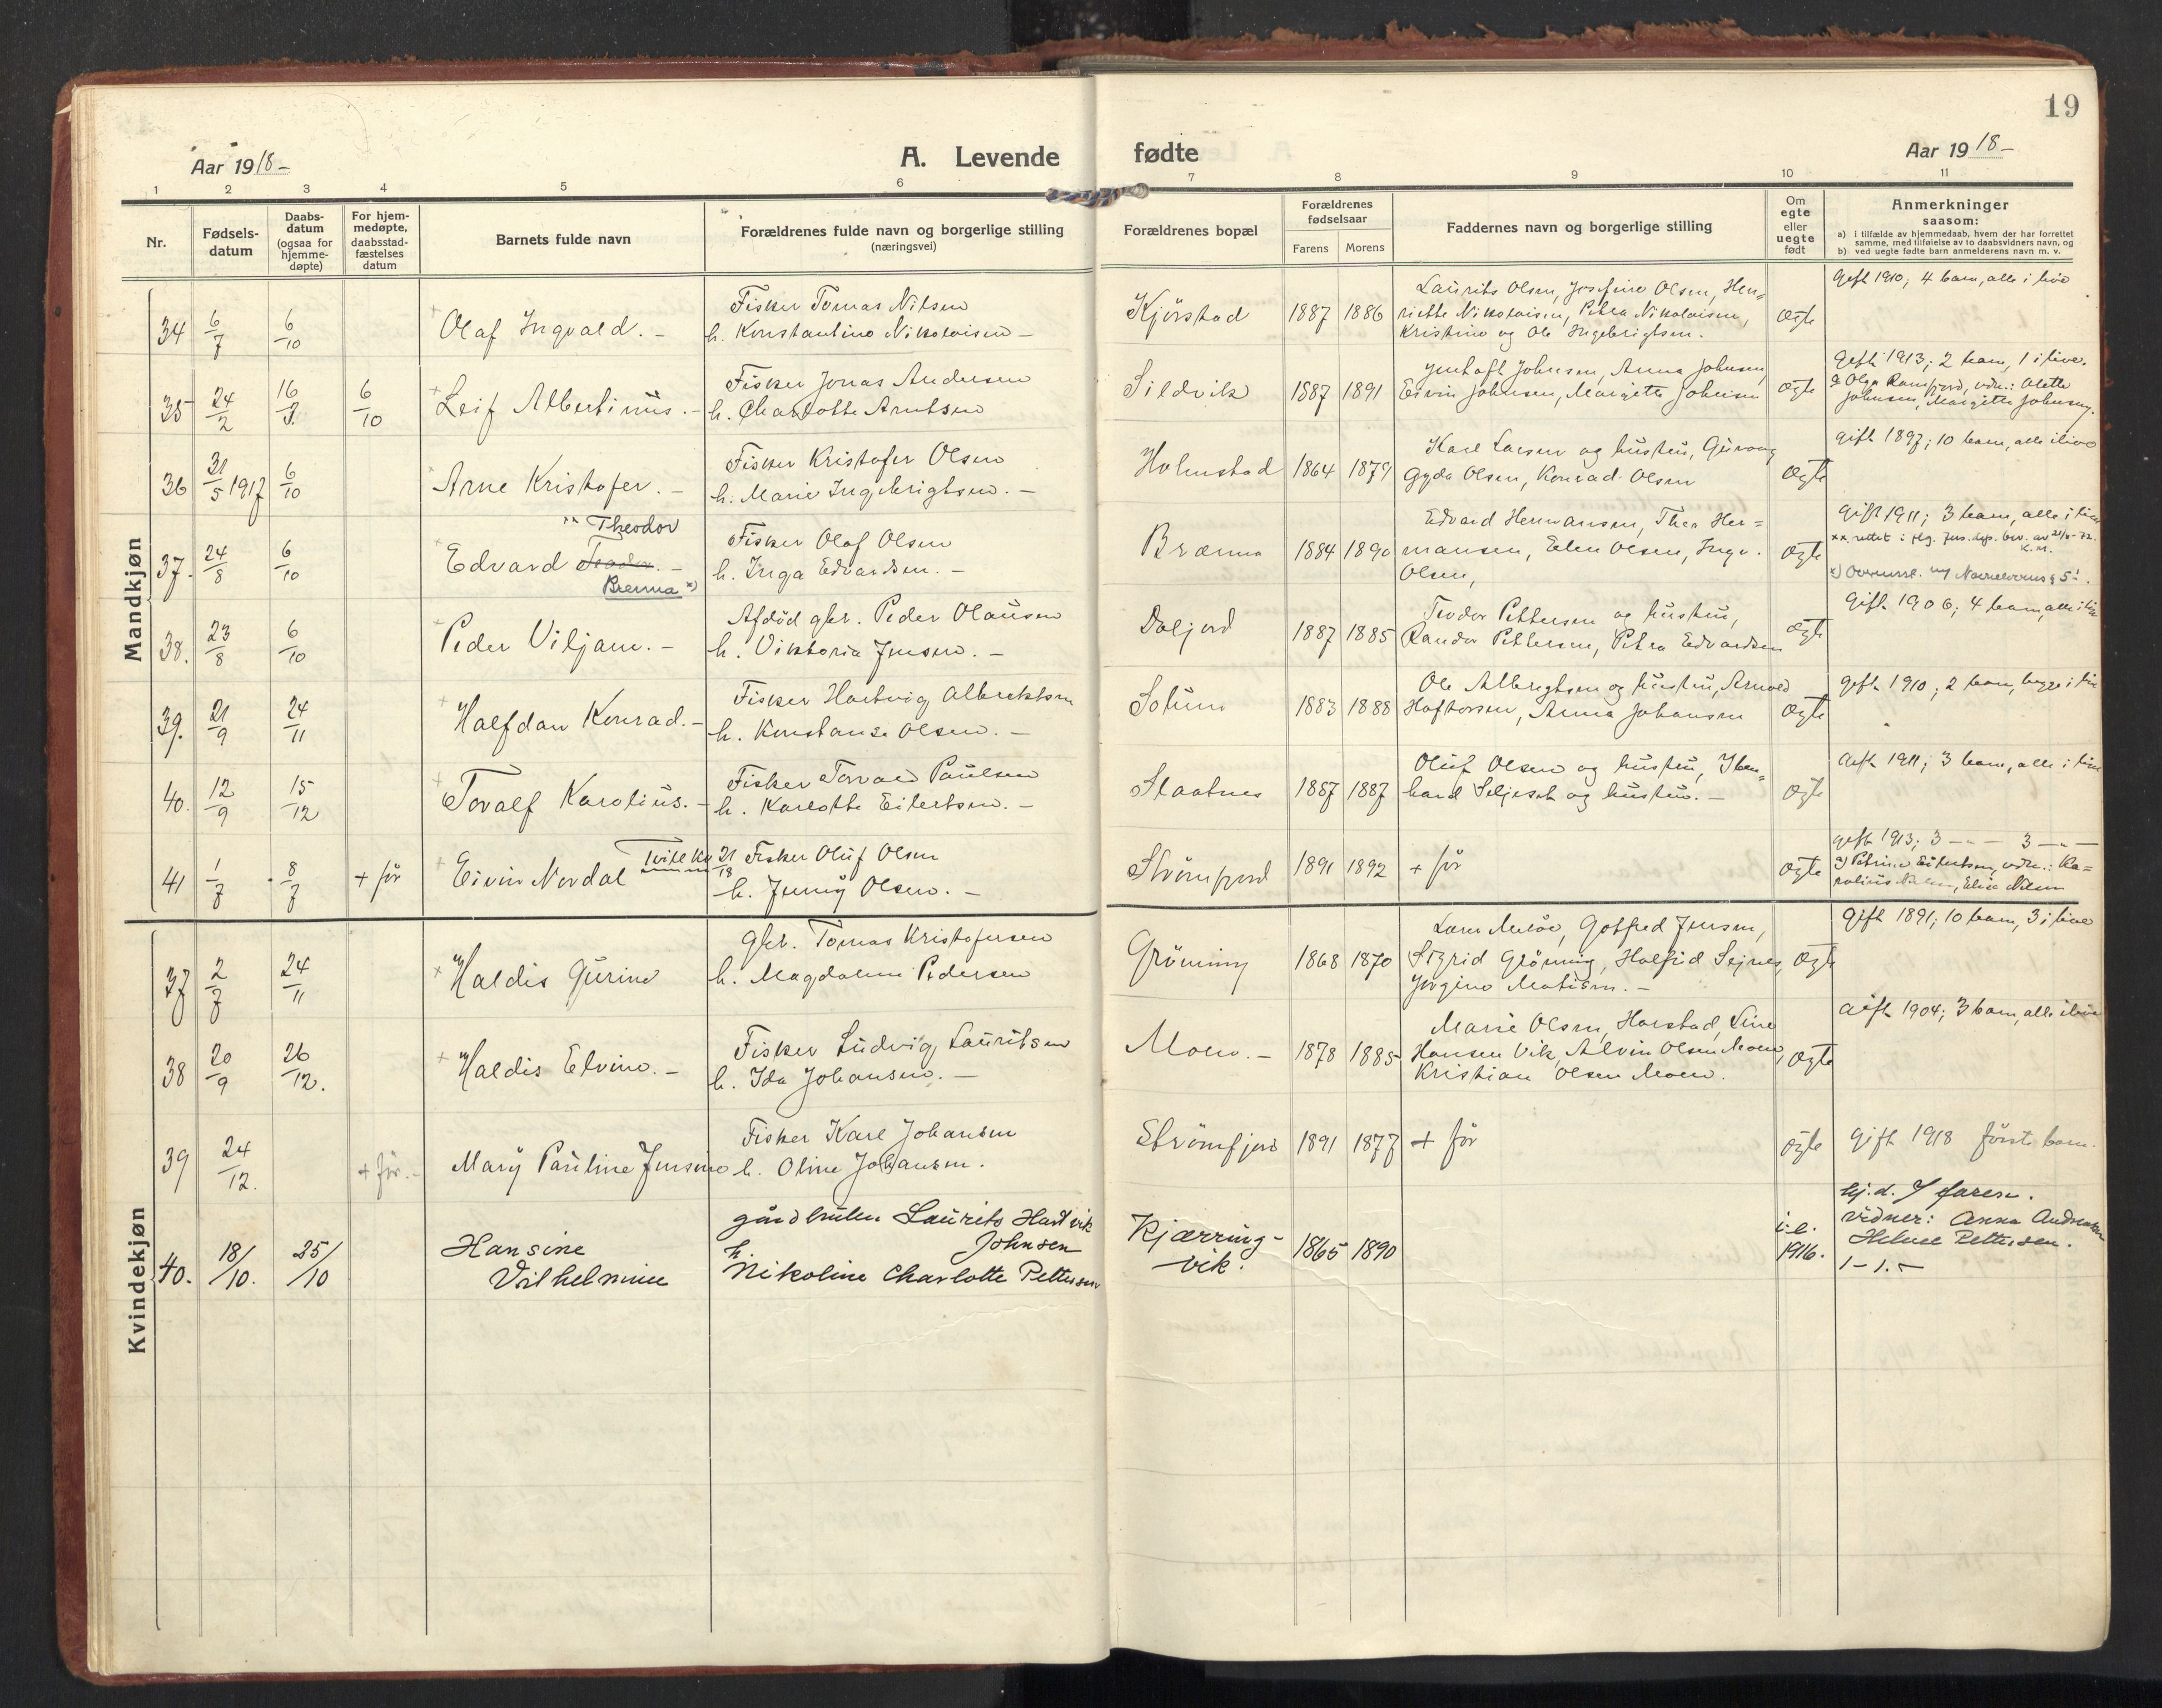 19
Aar 1918-
A. Levende
fødte
Aar 1918-
1 2 3 4 5 6 7 8 9 10 11
Nr.
Fødsels-
datum
Daabs-
datum
(ogsaa for
hjemme-
døpte)
For hjem-
medøpte,
daabsstad-
fæstelses
datum
Barnets fulde navn
Forældrenes fulde navn og borgerlige stilling
(næringsvei)
Forældrenes bopæl
Forældrenes
fødselsaar
Farens Morens
Faddernes navn og borgerlige stilling
Om
egte
eller
uegte
født
Anmerkninger
saasom:
a) i tilfælde av hjemmedaab, hvem der har forrettet
samme, med tilføielse av to daabsvidners navn, og
b) ved uegte fødte barn anmelderens navn m. v.
Mandkjøn
34 6/7 6/10 Olaf Ingvald. -
Fisker Tomas Nilsen
h. Konstantine Nikolaisen -
Kjörstad 1887 1886
Laurits Olsen, Josefine Olsen, Hen=
riette Nikolaisen, Petra Nikolaisen,
Kristine og Ole Ingebrigtsen.
egte
Gift 1910; 4 barn, alle i live
35 24/2 16/3. 6/10 Leif Albertinus. -
Fisker Jonas Andersen
h. Charlotte Arntsen
Sildvik 1887 1891
Johnsen, Anna Johnsen,
Eivin Johnsen, Margitte Johnsen
egte
Gift 1913; 2 barn, 1 i live.
Olga Ramfjord, vdn.: Alette
Johnsen, Margitte Johnsen.
36 31/5 1917 6/10 Arne Kristofer. -
Fisker Kristofer Olsen
h. Marie Ingebrigtsen. -
Holmstad 1864 1879
Karl Larsen og hustru, Guroug
Gyda Olsen, Konrad Olsen
egte
Gift 1897; 10 barn, alle i live
37. 24/8 6/10
xx Theodor
Edvard Teodor. -
Brenna x)
Fisker Olaf Olsen
h. Inga Edvardsen. -
Brænna 1884 1890
Edvard Hermansen, Thea Her=
mansen, Elen Olsen, Inga
Olsen,
egte
Gift 1911; 3 barn, alle i live
xx rettet i flg. Jus. dep. bev. av
K.M.
38. 23/8 6/10 Peder Viljam. -
Afdöd gbr. Peder Olausen
h. Viktoria Jensen. -
Daljord 1887 1885
Teodor Pettersen og hustru,
Randor Pettersen, Petra Edvardsen
egte
Gift 1906; 4 barn, alle i live
39. 21/9 24/11 Halfdan Konrad. -
Fisker Hartvig Albrektsen
h. Konstanse Olsen. -
Solum 1883 1888
Ole Albrigtsen og hustru, Arnold
Haftorsen, Anna Johansen
egte
Gift 1910; 2 barn, begge i live
40. 12/9 15/12 Toralf Karolius. -
Fisker Torvald Paulsen
h. Karlotte Eilertsen. -
Slaatnes 1887 1887
Oluf Olsen og hustru,
hard Seljeset og hustru. -
egte
Gift 1911; 3 barn, alle i live
41 1/7 8/7 + för Eivin Nordal
21/18
Fisker Oluf Olsen
h. Jenny Olsen. -
Strömfjord 1891 1892 + för
egte
gift 1913; 3 -"- 3 -"-
Petrine Eilertsen, vdn.: Ka=
rolius Nilsen, Elise Nilsen
Kvindekjøn
37 2/7 24/11 Haldis Gurine
Gbr. Tomas Kristofersen
h. Magdalene Pedersen
Gröning 1868 1870
Lorn Meløe, Gotfred Jensen,
Sigrid Gröning, Halfrid Sejnes,
Jörgine Matisen. -
egte
Gift 1891; 10 barn, 3 i live
38 20/9 26/12. Haldis Elvine. -
Fisker Ludvig Lauritsen
h. Ida Johansen. -
Moen. - 1878 1885
Marie Olsen, Harstad, Line
Hansen Vik, Alvin Olsen Moen,
Kristian Olsen Moen.
egte
Gift 1904; 3 barn, alle i live
39 24/12. + för. - Mary Pauline Jensine
Fisker Karl Johansen
h. Oline Johansen.
Strömfjord 1891 1877 + för
egte
Gift 1918 förste barn.
40. 18/10. 25/10
Hansine
Vilhelmine
gårdbruker Laurits Hartvik
Johnsen
h.
Nikoline Charlotte Pettersen
Kjærring-
vik. 1865 1890
i.e.
1916.
hj.d. / faren.
Vidner: Anna Andreasen
Helene Pettersen.
1 - 1. -